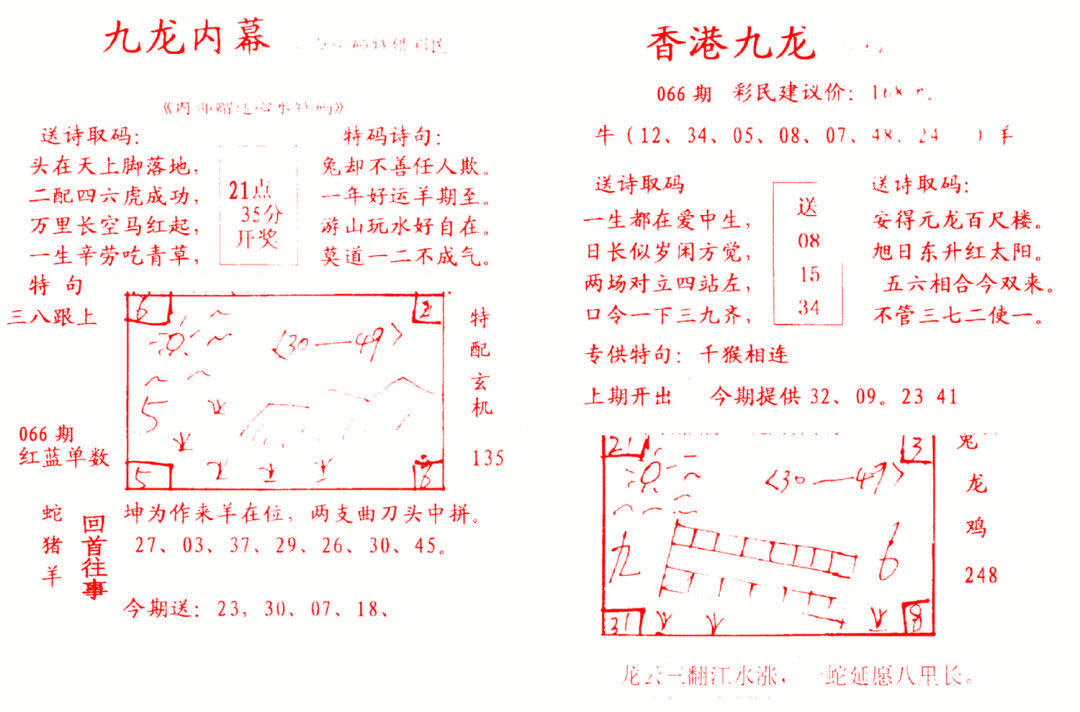 九龙内幕
送诗取码：
头在天上脚落地，
二配四六虎成功，
万里长空马红起，
一生辛劳吃青草，
21点
35分
开奖
特码诗句：
兔却不善任人欺。
一年好运羊期至。
游山玩水好自在。
莫道一二不成气。
特 句
三八跟上
6
2
〈30—49〉
5
5
8
特配玄机
135
066 期
红蓝单数
蛇
猪
羊
回首往事
坤为作来羊在位，两支曲刀头中拼。
27、03、37、29、26、30、45。
今期送：23，30、07、18、
香港九龙
066 期 彩民建议价：168
牛（12、34、05、08、07、48、24 ）羊
送诗取码
一生都在爱中生，
日长似岁闲方觉，
两场对立四站左，
口令一下三九齐，
送
08
15
34
送诗取码：
安得元龙百尺楼。
旭日东升红太阳。
五六相合今双来。
不管三七二使一。
专供特句：千猴相连
上期开出 今期提供 32、09。23 41
21
3
〈30—49〉
九
6
31
8
兔
龙
鸡
248
龙云三翻江水涨，一蛇延愿八里长。